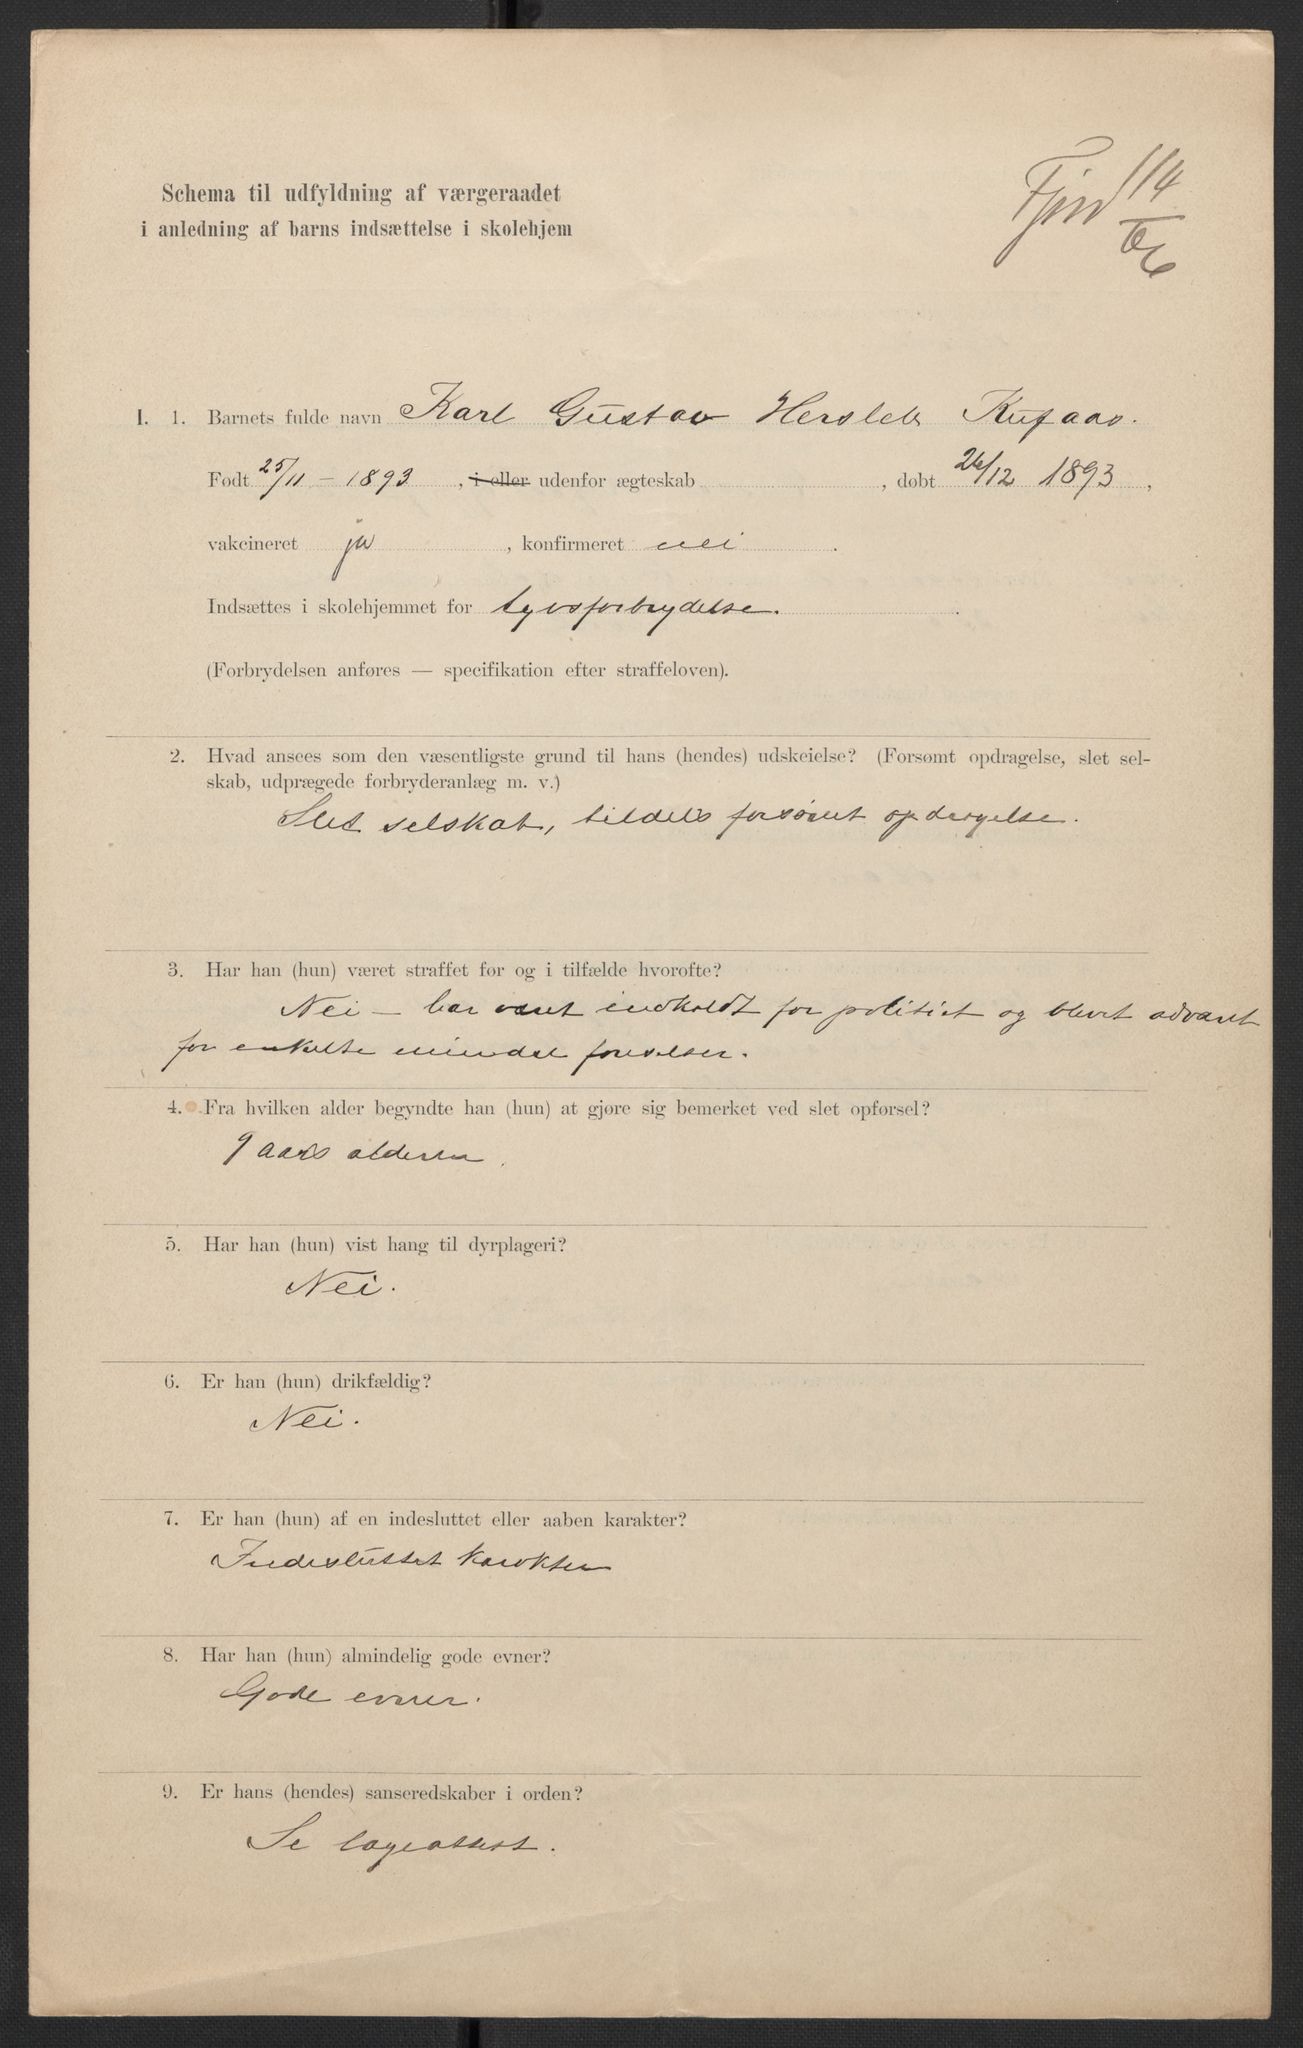 Schema til udfyldning af værgeraadet
i anledning af barns indsættelse i skolehjem
114
I. 1. Barnets fulde navn Karl Gustav Hersleb
Født 25/11 - 1893, i eller udenfor ægteskab , døbt 26/12 1893,
vakcineret ja , konfirmeret nei .
Indsættes i skolehjemmet for tyvsforbrydelse.
(Forbrydelsen anføres — specifikation efter straffeloven).
2. Hvad ansees som den væsentligste grund til hans (hendes) udskeielse? (Forsømt opdragelse, slet sel-
skab, udprægede forbryderanlæg m. v.)
Slet selskab, tildels forsømt opdragelse.
3. Har han (hun) været straffet før og i tilfælde hvorofte?
Nei - har været indkaldt for politiet og blevet advaret
for enkelte mindre foreelser.
4. Fra hvilken alder begyndte han (hun) at gjøre sig bemerket ved slet opførsel?
9 aars alderen.
5. Har han (hun) vist hang til dyrplageri?
Nei.
6. Er han (hun) drikfældig?
Nei.
7. Er han (hun) af en indesluttet eller aaben karakter?
Indesluttet karakter
8. Har han (hun) almindelig gode evner?
Gode evner.
9. Er hans (hendes) sanseredskaber i orden?
Se lægeattest.